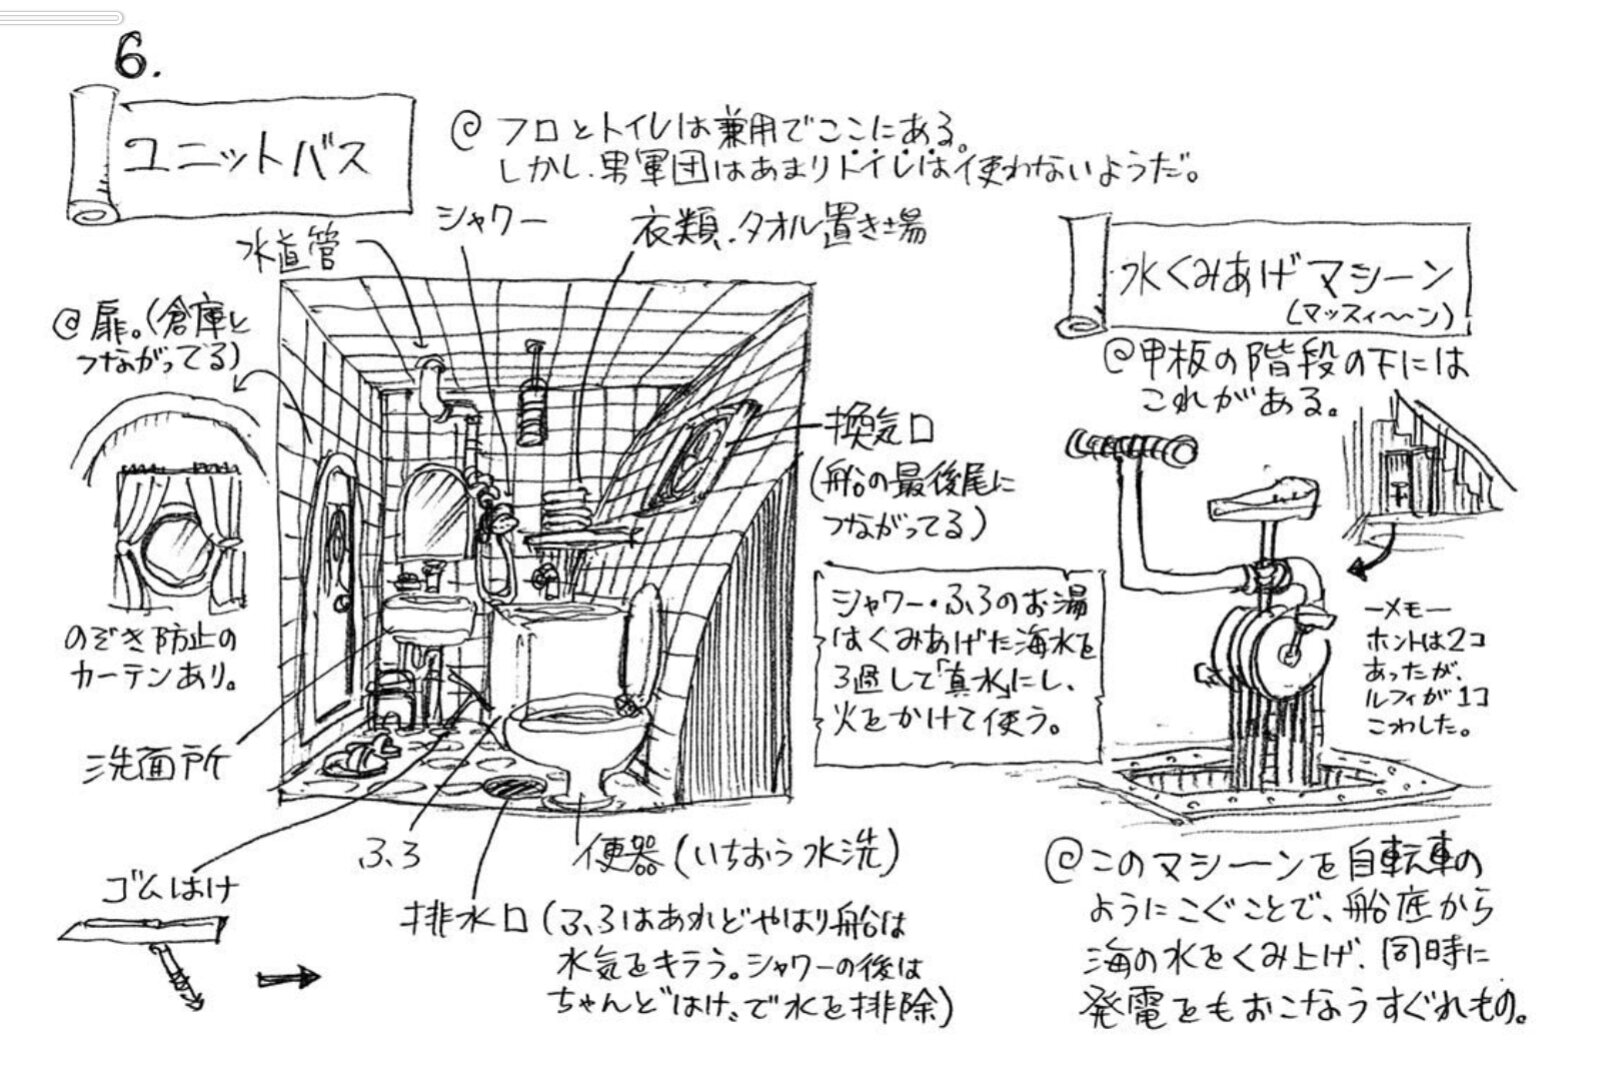 6.
ユニットバス
@ フロとトイレは兼用でここにある。
しかし、男軍団はあまりトイレは使わないようだ。
水道管
シャワー
衣類、タオル置き場
@ 扉。(倉庫と
つながってる)
のぞき防止の
カーテンあり。
換気口
(船の最後尾に
つながってる)
シャワー・ふろのお湯
はくみあげた海水を
3過して「真水」にし、
火をかけて使う。
洗面所
ふろ
便器(いちおう水洗)
ゴムはけ
排水口(ふろはあれどやはり船は
水気をキラう。シャワーの後は
ちゃんと"はけ"で水を排除)
水くみあげマシーン
(マッスィ〜〜ン)
@甲板の階段の下には
これがある。
ーメモー
ホントは2コ
あったが、
ルフィが1コ
こわした。
@このマシーンを自転車の
ようにこぐことで、船底から
海の水をくみ上げ、同時に
発電をもおこなうすぐれもの。